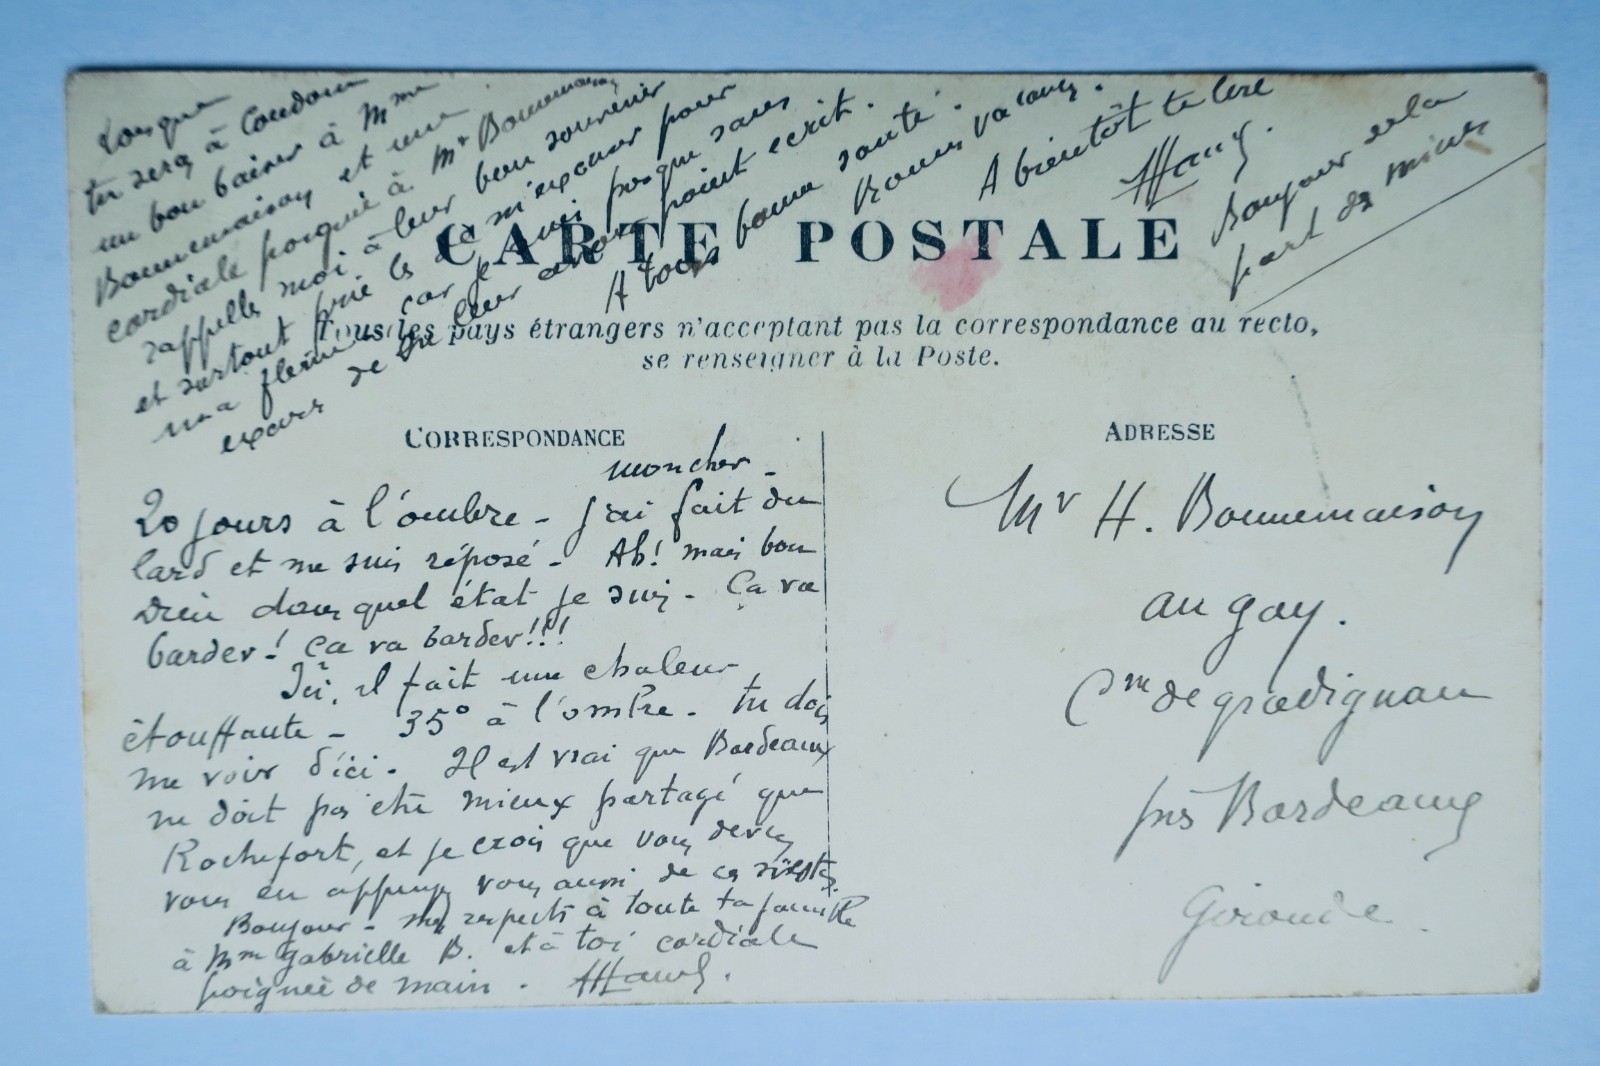 Lorsque
tu sera à Condom
un bon baiser à Mme
Bonnemaison et une
cordiale poignée à Mr Bonnemaison
rappelle moi à leur bon souvenir
et surtout prie les de m'excuser pour
ma flemme car je suis presque sans
excuse de ne leur avoir point ecrit.
A tous bonne santé.
Bonnes vacances.
A bientôt te lire
Bonjour de la
part des miens
CARTE POSTALE
Tous les pays étrangers n'acceptant pas la correspondance au recto,
se renseigner à la Poste.
CORRESPONDANCE
ADRESSE
mon cher -
20 jours à l'ombre - j'ai fait du
lard et me suis réposé - Ah! mais bon
Dieu dans quel état je suis - Ça va
barder! Ça va barder!!!
Ici, il fait une chaleur
étouffante - 35° à l'ombre - tu dois
me voir d'ici - Il est vrai que Bordeaux
ne doit pas être mieux partagé que
Rochefort, et je crois que vous devez
vous en appuyer vous aussi de ces
Bonjour - mes respects à toute ta famille
à Mme Gabrielle B. et à toi cordiale
poignée de main.
Mr H. Bonnemaison
au gay.
Cne de gradignan
près Bordeaux
Gironde.